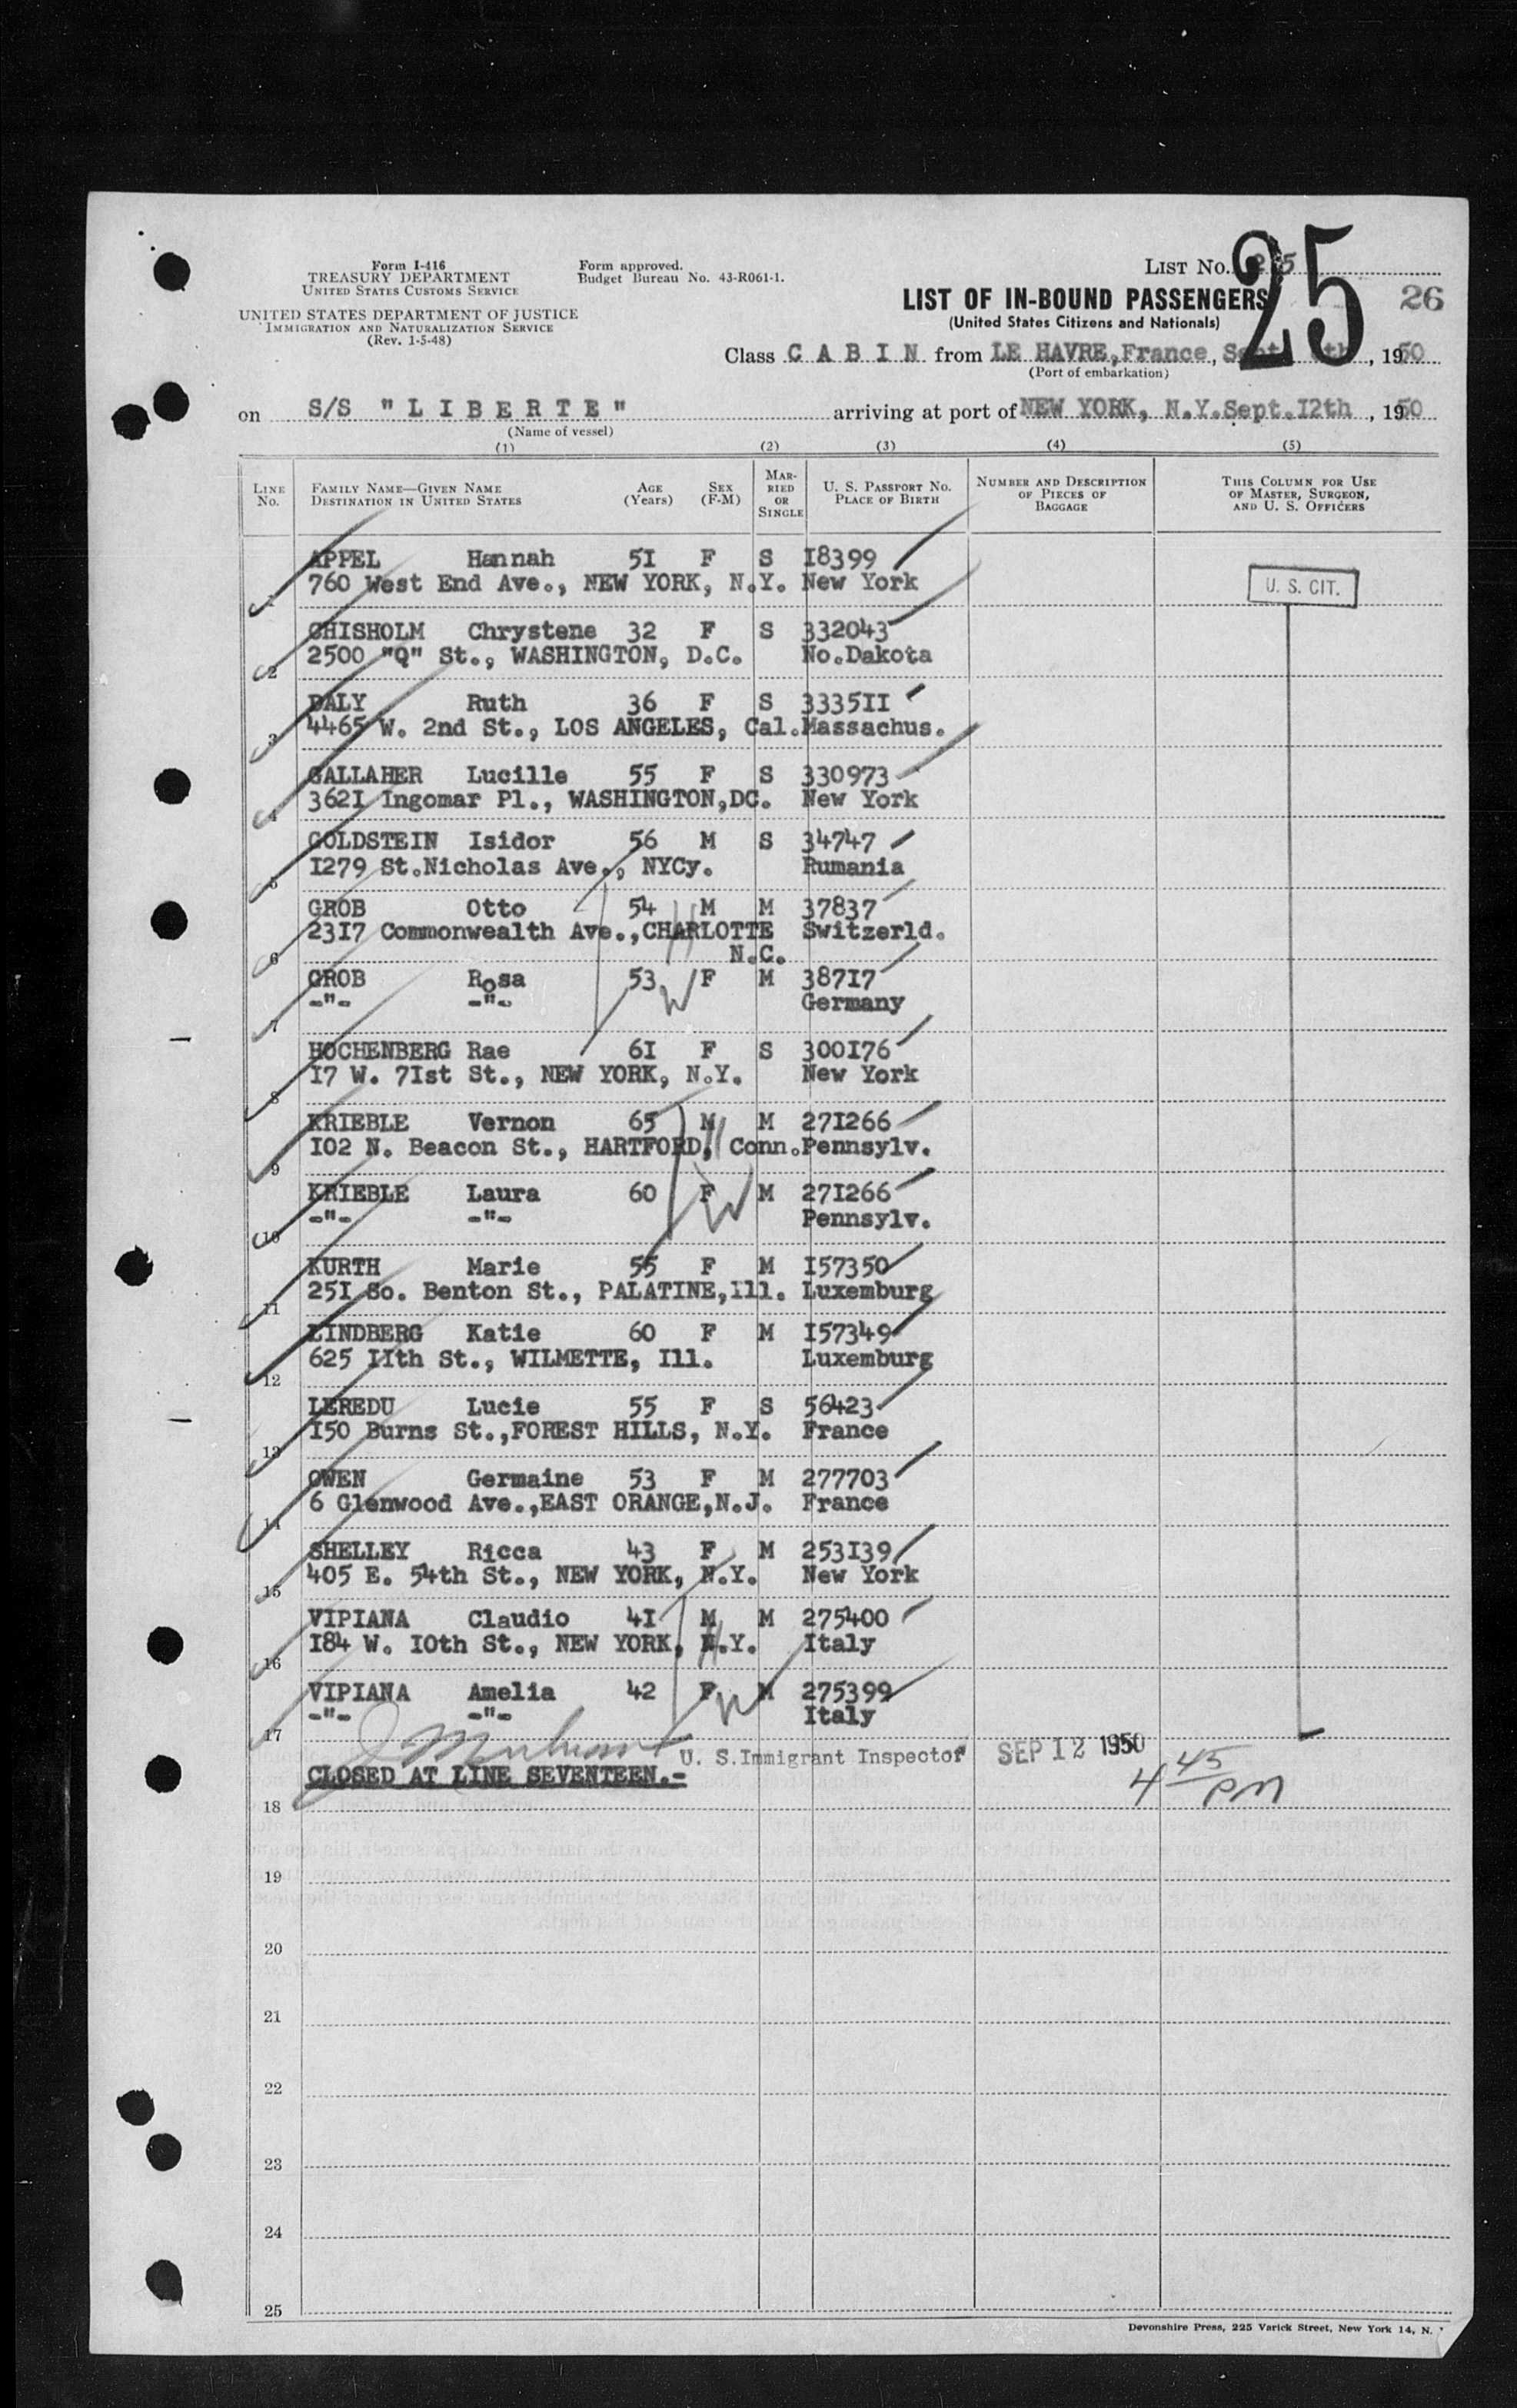 Form I-416
TREASURY DEPARTMENT
UNITED STATES CUSTOMS SERVICE
UNITED STATES DEPARTMENT OF JUSTICE
IMMIGRATION AND NATURALIZATION SERVICE
(Rev. 1-5-48)
Form approved.
Budget Bureau No. 43-R061-1.
LIST NO. 25
25
26
LIST OF IN-BOUND PASSENGERS
(United States Citizens and Nationals)
Class C A B I N from LE HAVRE, France, Sept. th, 1950
(Port of embarkation)
on S/S "L I B E R T E" arriving at port of NEW YORK, N.Y. Sept. I2th, 1950
(Name of vessel)
(1) (2) (3) (4) (5)
LINE No. FAMILY NAME—GIVEN NAME DESTINATION IN UNITED STATES AGE (Years) SEX (F-M) MARRIED OR SINGLE U. S. PASSPORT NO. PLACE OF BIRTH NUMBER AND DESCRIPTION OF PIECES OF BAGGAGE THIS COLUMN FOR USE OF MASTER, SURGEON, AND U. S. OFFICERS
APPEL Hannah 5I F S I8399
1 760 West End Ave., NEW YORK, N.Y. New York U. S. CIT.
CHISHOLM Chrystene 32 F S 332043
2 2500 "Q" St., WASHINGTON, D.C. No.Dakota
DALY Ruth 36 F S 3335II
3 4465 W. 2nd St., LOS ANGELES, Cal. Massachus.
GALLAHER Lucille 55 F S 330973
4 362I Ingomar Pl., WASHINGTON,DC. New York
GOLDSTEIN Isidor 56 M S 34747
5 I279 St.Nicholas Ave., NYCy. Rumania
GROB Otto 54 M M 37837
23I7 Commonwealth Ave.,CHARLOTTE Switzerld.
6 N.C.
GROB Rosa 53 F M 387I7
-"- -"- Germany
7
HOCHENBERG Rae 6I F S 300I76
I7 W. 7Ist St., NEW YORK, N.Y. New York
8
KRIEBLE Vernon 65 M M 27I266
I02 N. Beacon St., HARTFORD, Conn. Pennsylv.
9
KRIEBLE Laura 60 F M 27I266
-"- -"- Pennsylv.
10
KURTH Marie 55 F M I57350
25I So. Benton St., PALATINE,Ill. Luxemburg
11
LINDBERG Katie 60 F M I57349
625 IIth St., WILMETTE, Ill. Luxemburg
12
LEREDU Lucie 55 F S 56423
I50 Burns St.,FOREST HILLS, N.Y. France
13
OWEN Germaine 53 F M 277703
6 Glenwood Ave.,EAST ORANGE,N.J. France
14
SHELLEY Ricca 43 F M 253I39
405 E. 54th St., NEW YORK, N.Y. New York
15
VIPIANA Claudio 4I M M 275400
I84 W. I0th St., NEW YORK, N.Y. Italy
16
VIPIANA Amelia 42 F M 275399
-"- -"- Italy
17
U. S. Immigrant Inspector SEP 12 1950
CLOSED AT LINE SEVENTEEN.- 4 45 PM
18
19
20
21
22
23
24
25
Devonshire Press, 225 Varick Street, New York 14, N.